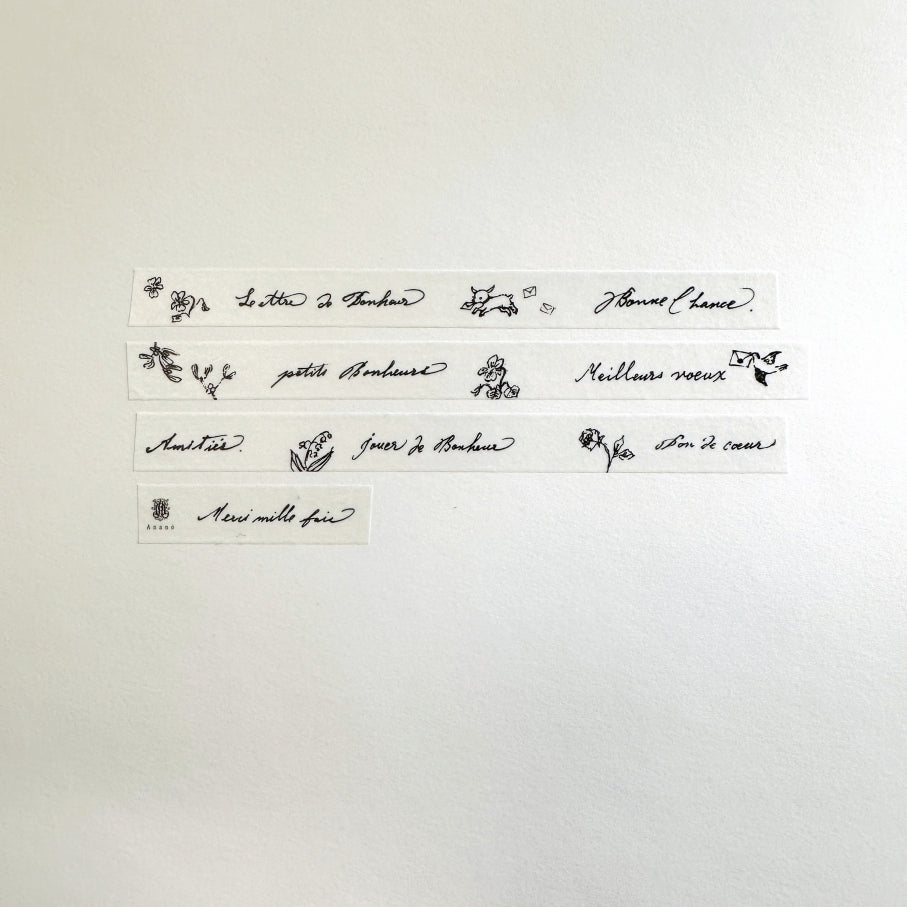 Lettre de Bonheur Bonne Chance.
petits Bonheurs Meilleurs voeux
Amitiés. jouer de Bonheur Bon de coeur
Anano Merci mille fois